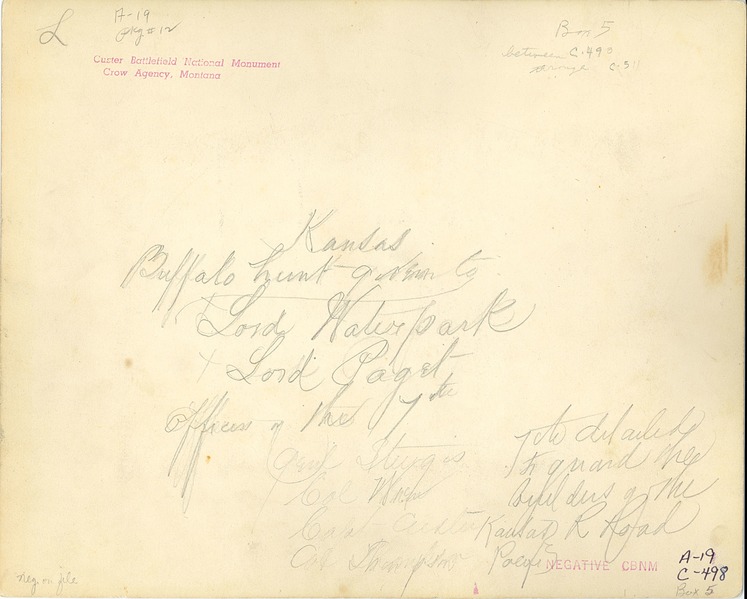 L
A-19
pkg # 12
Box 5
between C-490
C-511
Custer Battlefield National Monument
Crow Agency, Montana
Kansas
Buffalo hunt given to
x Lord Waterpark
x Lord Paget
Officers of the 7th
Genl Sturgis
Col
Capt Custer
Col Thompson
7th detailed
to guard the
builders of the
Kansas R Road
Pacific
NEGATIVE CBNM
A-19
C-498
Box 5
Neg. on file